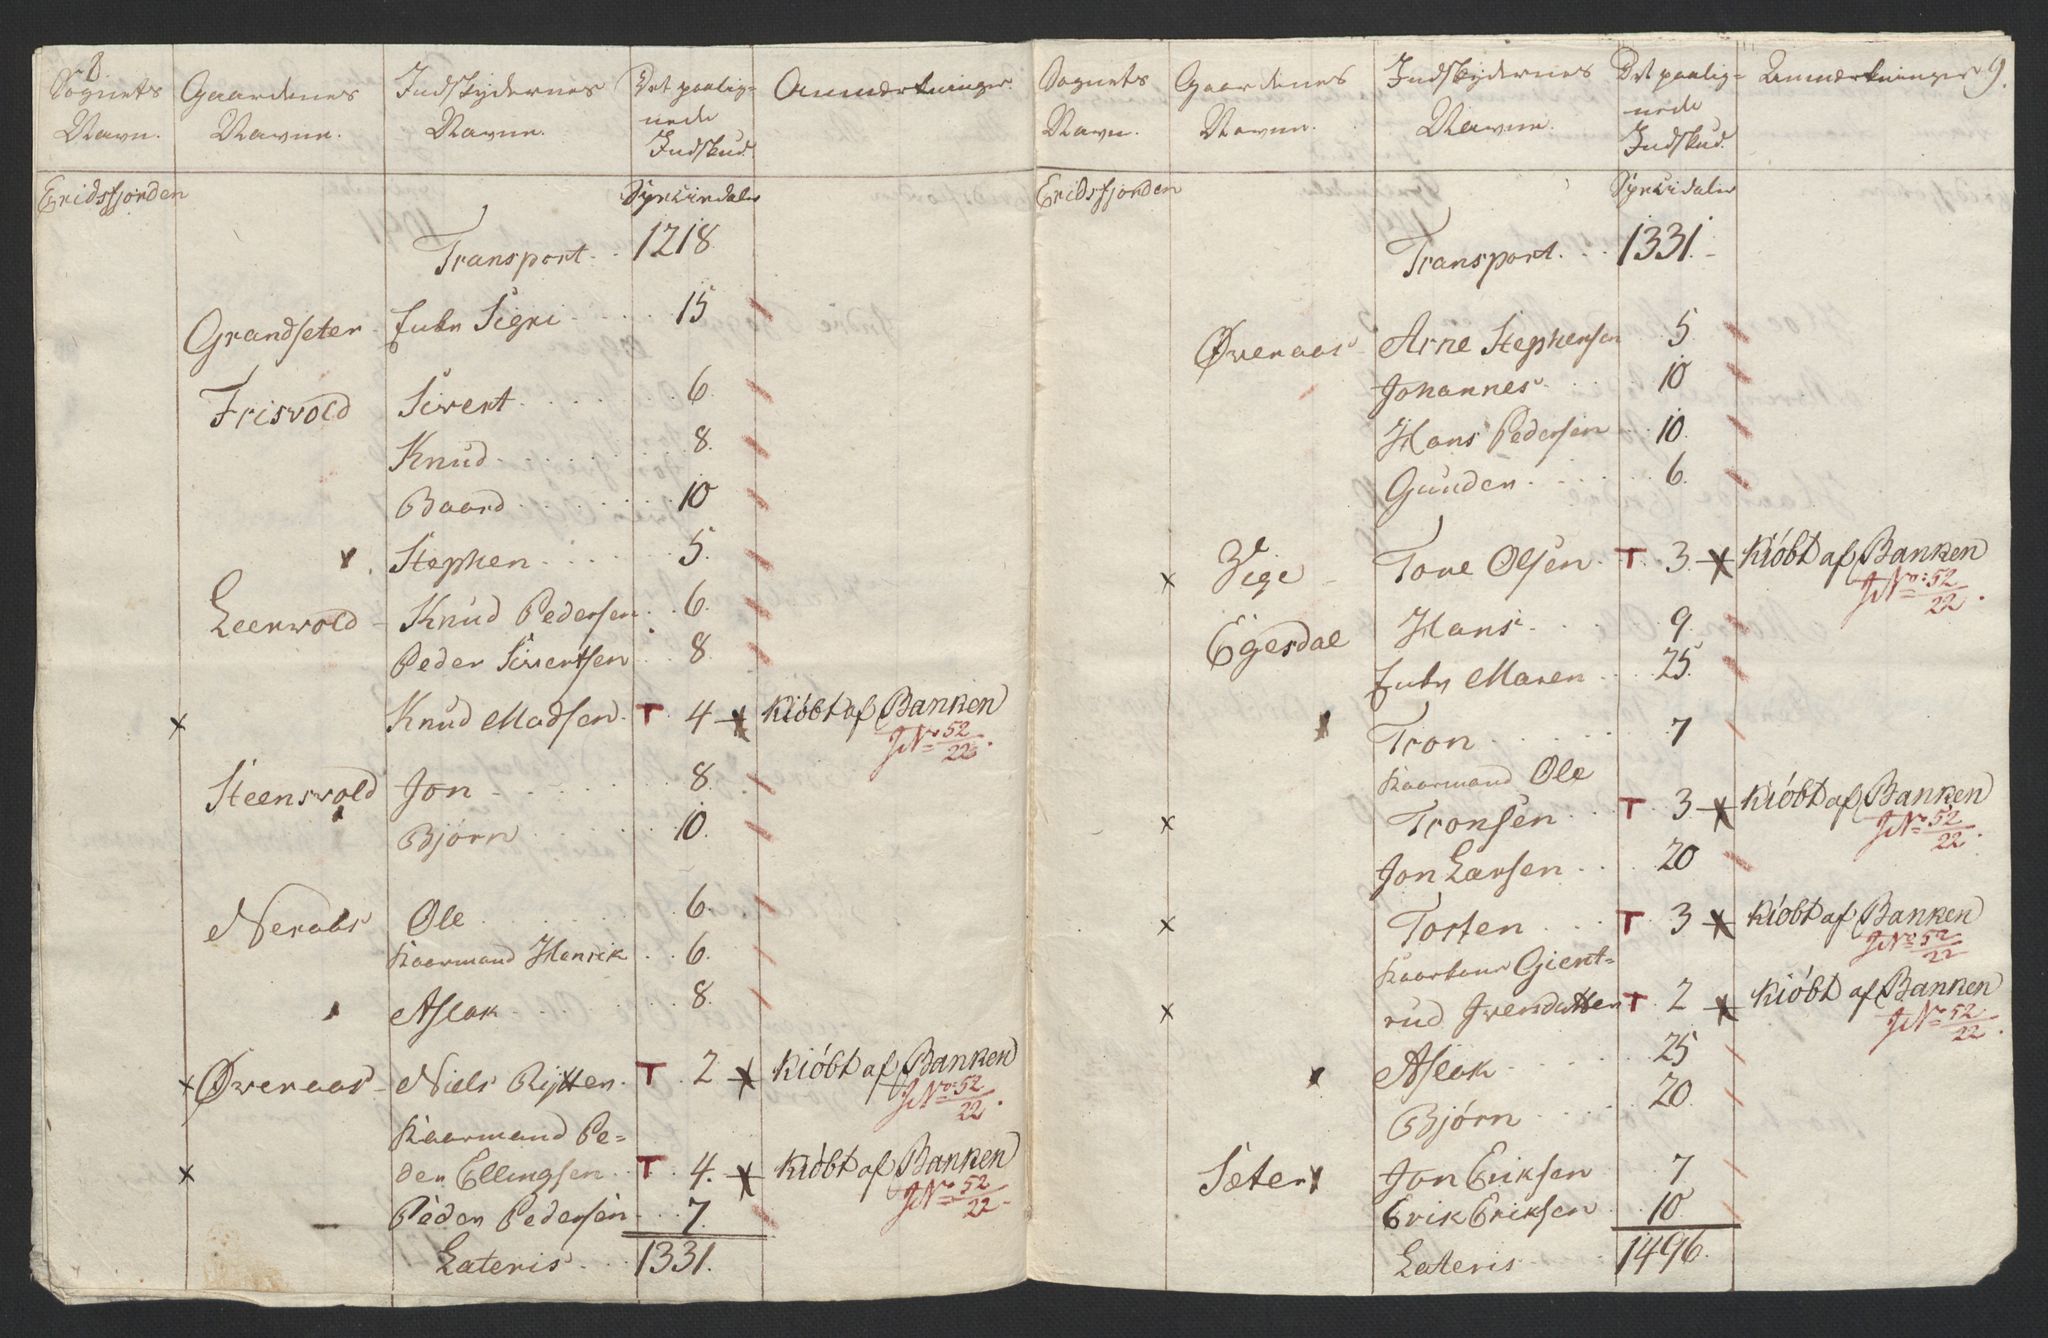 8
Sognets Navn. Gaardenes Navne. Indskydernes Navne. Det paalig-nede Indskud. Anmærkninger.
Eridsfjorden Sprcidaler
Transport 1218
Grandseter Enke Sigri 15
Frisvold Sivert 6
Knud 8
Baard 10
x Stephen 5
Leerwold Knud Pedersen 6
Peder Sivertsen 8
x Knud Madsen T 4 x Kiöbt af Banken
JNo 52/22.
Steenvold Jon 8
Bjørn 10
Neraas Ole 6
Kaarmand Henrik 6
Aslak 8
x Øveraas Niels Rytter T 2 x Kiöbt af Banken
JNo: 52/22.
Kaarmand Pe-
x der Ellingsen T 4. x Kiöbt af Banken
JNo 52/22
Peder Pedersen 7
Lateris 1331.
9.
Sognets Navn. Gaardenes Navne. Indskydernes Navne. Det paalig-nede Indskud. Anmærkninger
Eridsfjorden Sprcidaler
Transport 1331.
Øveraas Arne Stephensen 5
Johannes 10
Hans Pedersen 10
Gunder 6
x Vige Tove Olsen T 3 x Kiöbt af Banken
JNo: 52/22.
Egesdal Hans 9
Enke Maren 25
x Tron 7
Kaarmand Ole
x Tronsen T 3 x Kiöbt af Banken
JNo 52/22.
Jon Larsen 20
x Torten T 3 x Kiöbt af Banken
JNo 52/22
Kaarkone Giert-
x rud Iversdatter T 2 x Kiöbt af Banken
JNo 52/22.
x Aslak 25
Bjørn 20
Sæter x Jon Eriksen 7
Erik Eriksen 10
Lateris 1496.